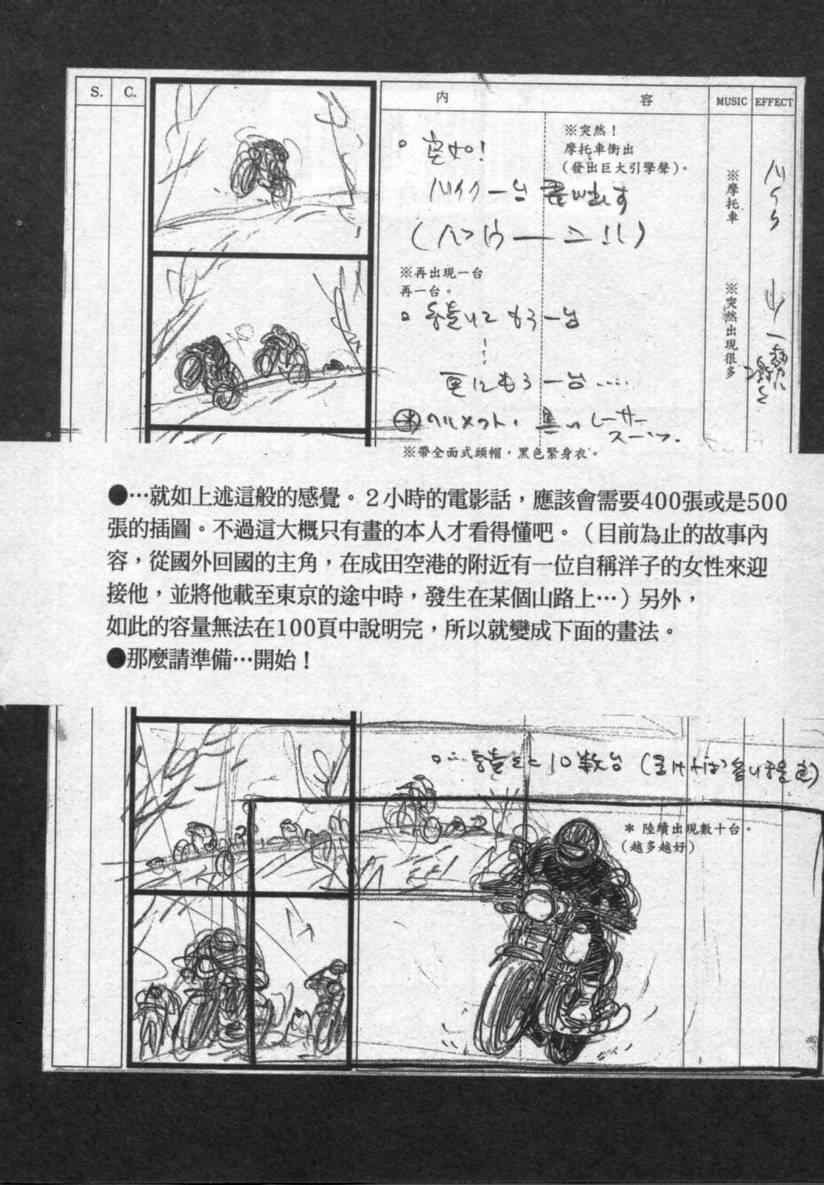 S. C. 內 容 MUSIC EFFECT
突如!
※突然!
摩托車衝出
(發出巨大引擎聲)。
バイク一台飛び出す
※摩托車
バイク
※再出現一台
再一台。
続いてもう一台
※突然出現很多
更にもう一台‥‥
ヘルメット、黒いレーサースーツ。
※帶全面式頭帽,黑色緊身衣。
●…就如上述這般的感覺。2小時的電影話,應該會需要400張或是500
張的插圖。不過這大概只有畫的本人才看得懂吧。(目前為止的故事內
容,從國外回國的主角,在成田空港的附近有一位自稱洋子的女性來迎
接他,並將他載至東京的途中時,發生在某個山路上…)另外,
如此的容量無法在100頁中說明完,所以就變成下面的畫法。
●那麼請準備…開始!
続々と10数台
* 陸續出現數十台。
(越多越好)